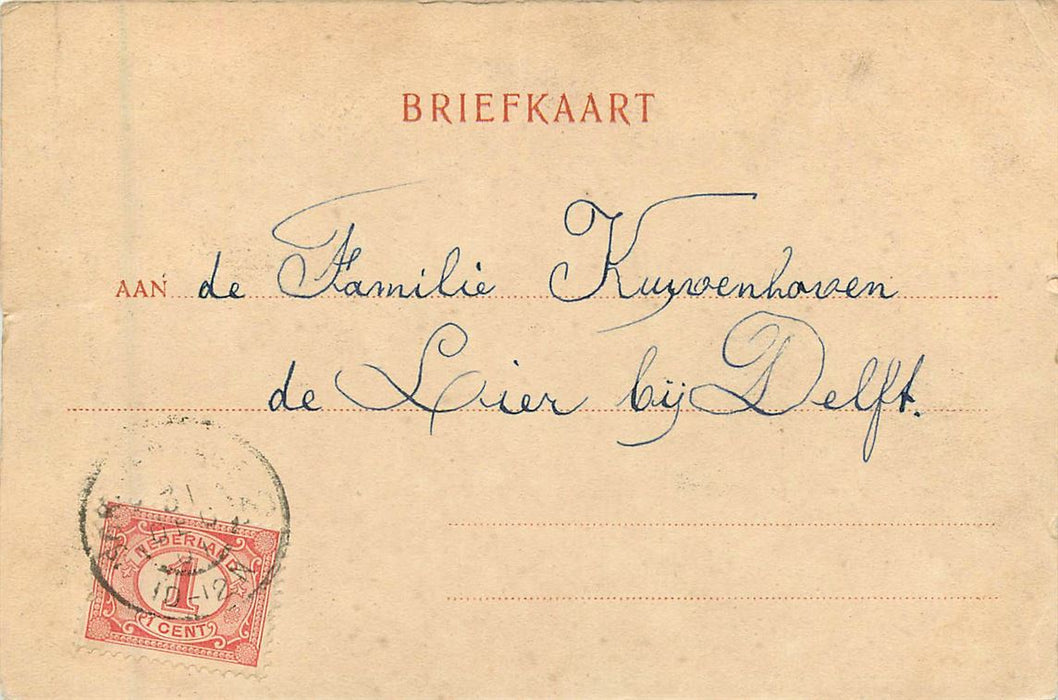 BRIEFKAART
AAN de Familie Kuyvenhoven
de Lier bij Delft.
NEDERLAND
1
1 CENT
10-12